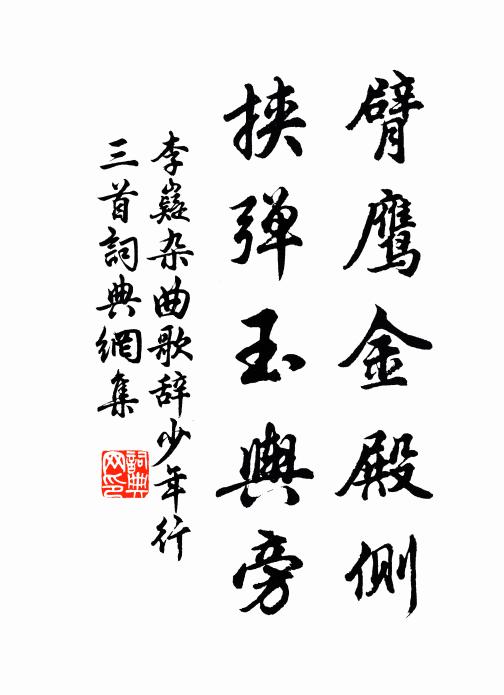 臂鹰金殿側
挟弹玉輿旁
李嶷杂曲歌辞少年行
三首詞典網集
詞典
网印